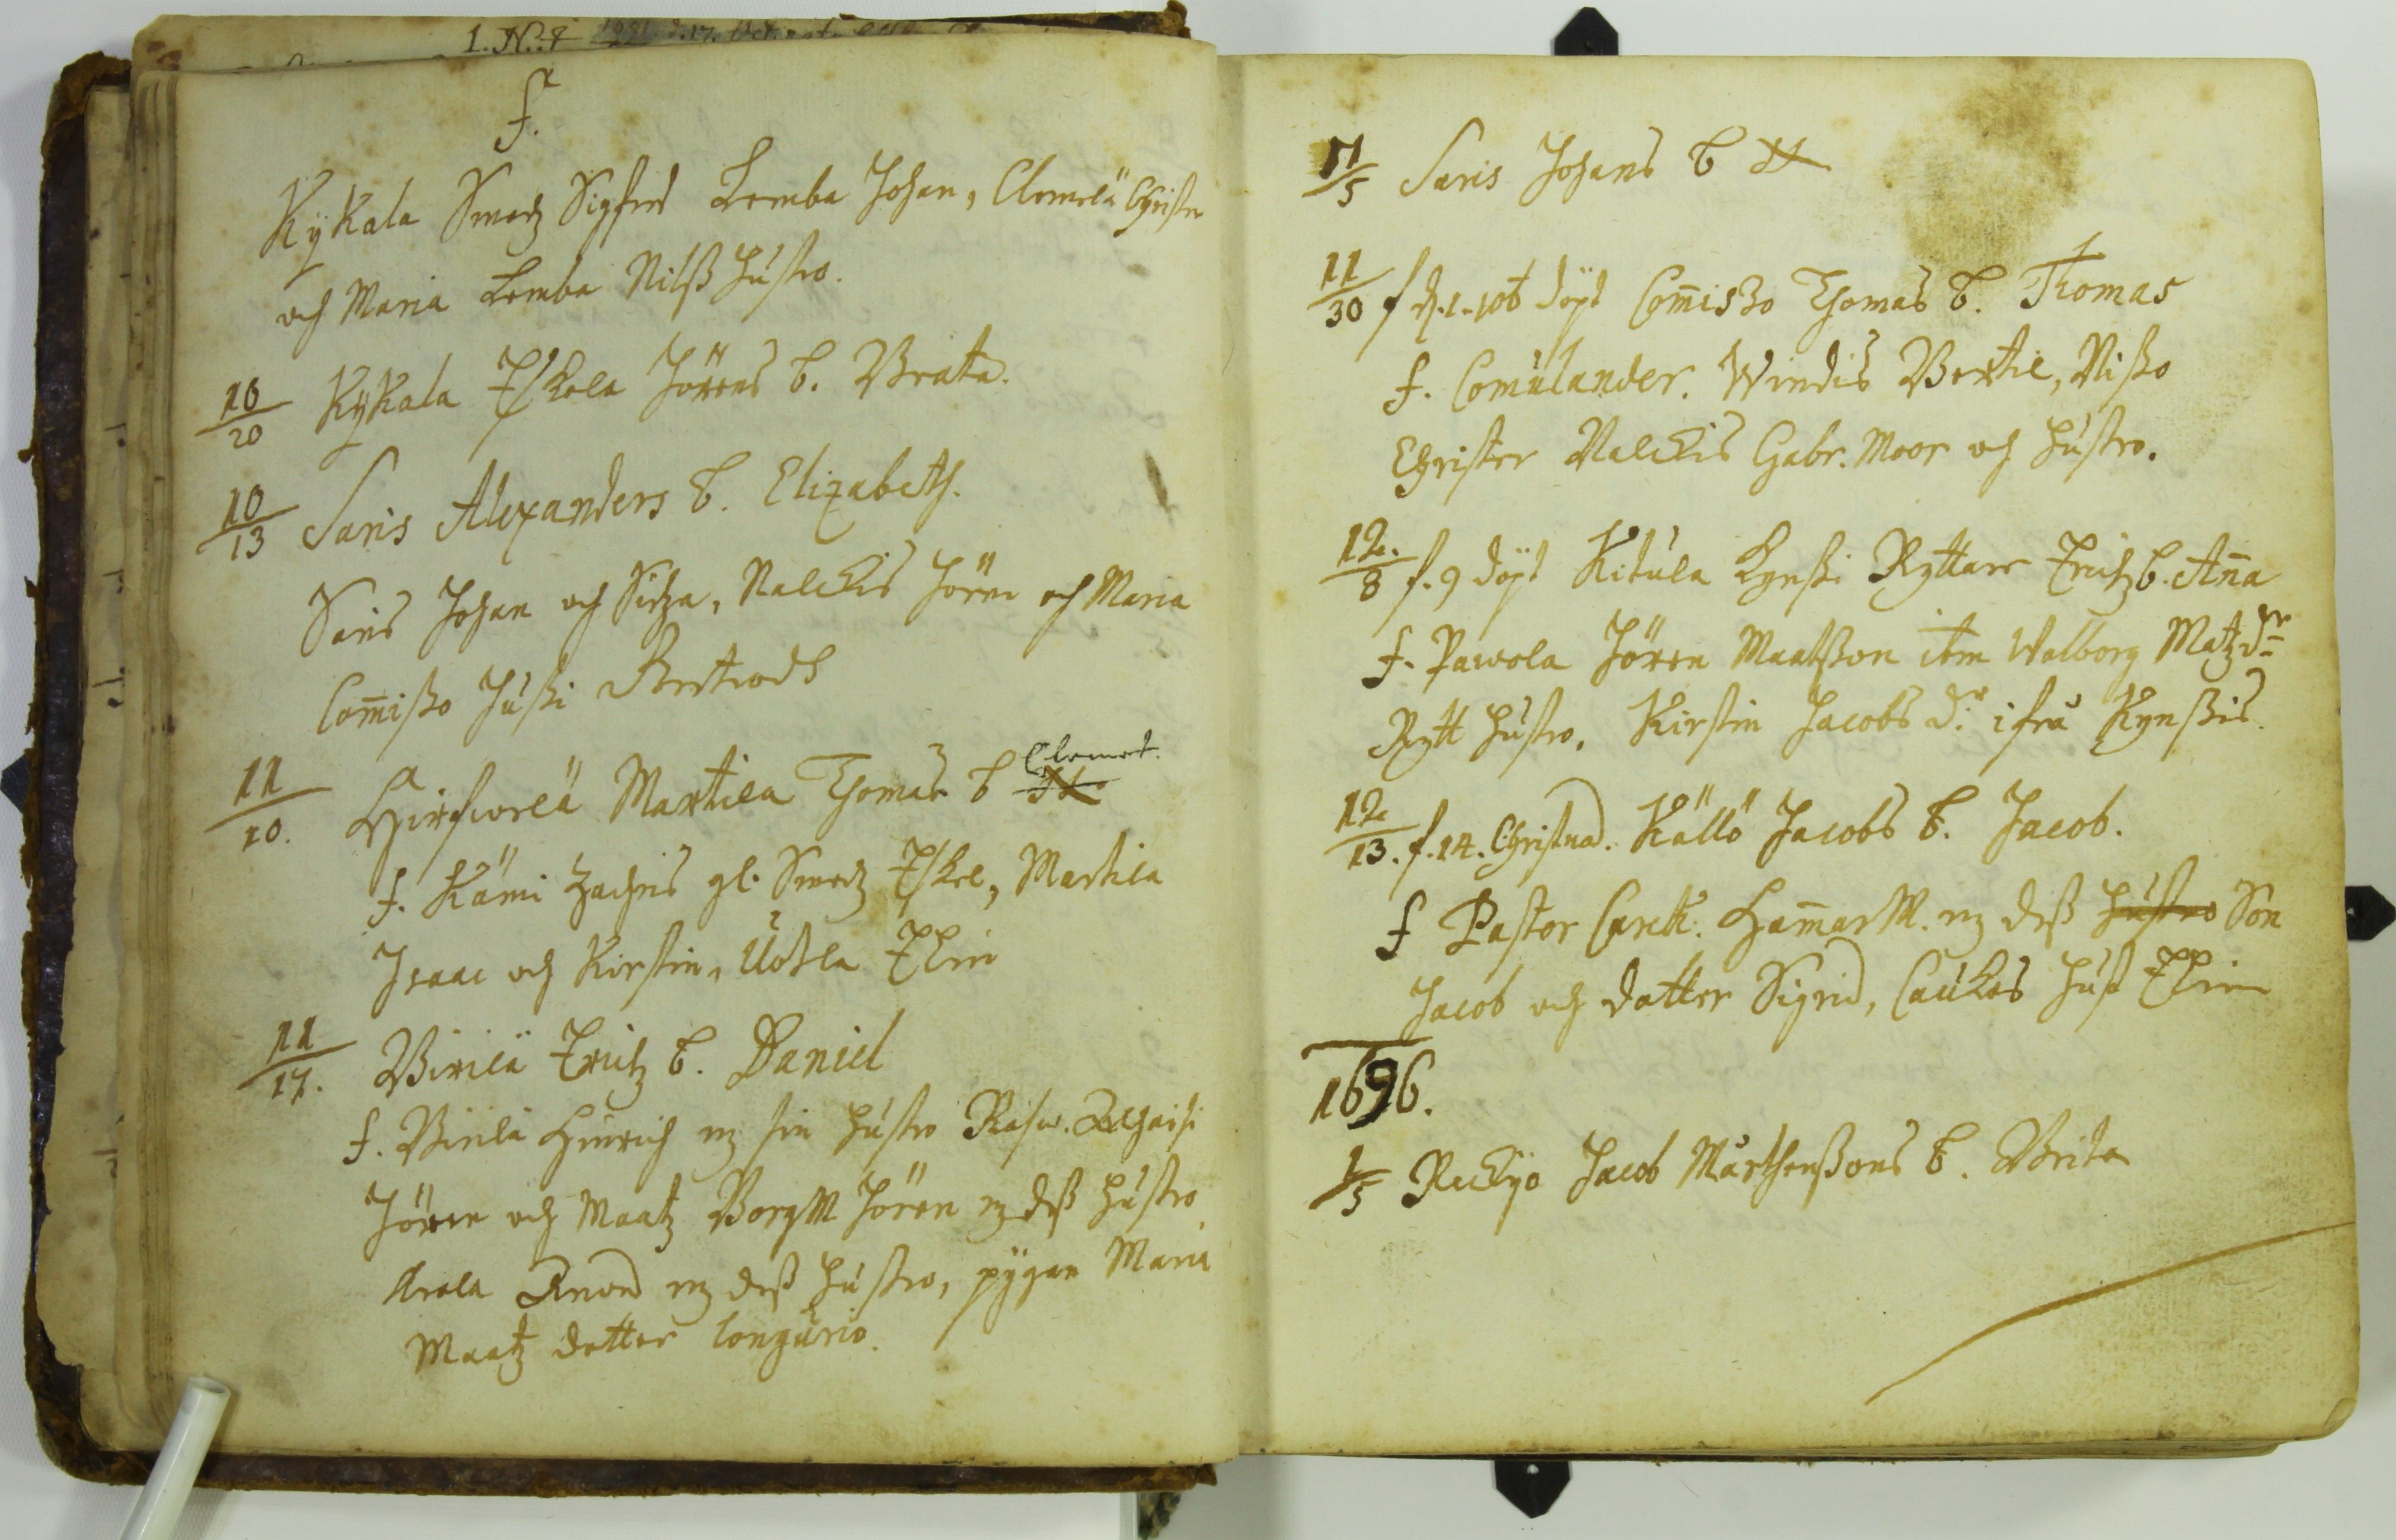 1. N:4
f.
Kÿkala Smedz Sigfred Lemba Johan, Clemelä Christer
och Maria Lemba Nilß hustro.
10/20 Kÿkala Eskela Jörens b. Beata.
10/13 Saris Alexanders b. Elizabeth.
Saris Johan och Sitza, Nalckis Jören och Maria
Com̄ißo Jußi
11/10. Hirfworlä Martila Thomas b Clemet.
f. Kämi Zachris gl. Smedz Eskel, Martila
Isaac och Kirstin, Uotila Elin
11/17. Birilä Erichz b. Daniel
f. Birilä Hinrich mz sin hustro
Jören och Maatz BorgM Jören mz deß hustro
Arola Knud mz deß hustro, pÿgan Maria
Maatz dotter
11/5 Saris Johans b
11/30 f döpt Com̄ißo Thomas b. Thomas
f. Comulander. Windis Bertil, Nißo
Christer Nalckis Gabr. Moor och hustro.
12/8 f. 9 döpt Kitula Kynßi Ryttare Erichz b. An̄a
f. Pawola Jören Maatßon item Walborg Matz dr
Rytt hustro, Kirstin Jacobs dr ifrå Kynßis
12/13. f. 14. Christnad. Källö Jacobs b. Jacob.
f Pastor Ham̄arM. mz deß hustro Son
Jacob och dotter Sigrid, Caukos hust Elin
1696.
1/5 Reckÿo Jacob Mårthenßons b. Brita